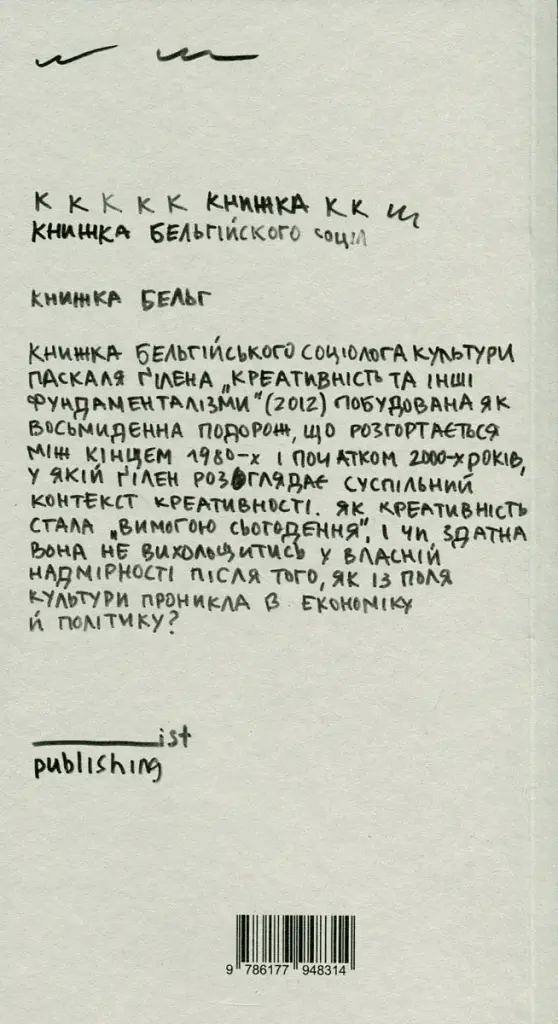 К К К К К КНИЖКА К К
КНИЖКА БЕЛЬГІЙСКОГО СОЦІЛ
КНИЖКА БЕЛЬГ
КНИЖКА БЕЛЬГІЙСЬКОГО СОЦІОЛОГА КУЛЬТУРИ
ПАСКАЛЯ ҐІЛЕНА „КРЕАТИВНІСТЬ ТА ІНШІ
ФУНДАМЕНТАЛІЗМИ“ (2012) ПОБУДОВАНА ЯК
ВОСЬМИДЕННА ПОДОРОЖ, ЩО РОЗГОРТАЄТЬСЯ
МІЖ КІНЦЕМ 1980-Х І ПОЧАТКОМ 2000-Х РОКІВ,
У ЯКІЙ ҐІЛЕН РОЗГЛЯДАЄ СУСПІЛЬНИЙ
КОНТЕКСТ КРЕАТИВНОСТІ. ЯК КРЕАТИВНІСТЬ
СТАЛА „ВИМОГОЮ СЬОГОДЕННЯ“, І ЧИ ЗДАТНА
ВОНА НЕ ВИХОЛОЩИТИСЬ У ВЛАСНІЙ
НАДМІРНОСТІ ПІСЛЯ ТОГО, ЯК ІЗ ПОЛЯ
КУЛЬТУРИ ПРОНИКЛА В ЕКОНОМІКУ
Й ПОЛІТИКУ?
________ist
publishing
9 786177 948314